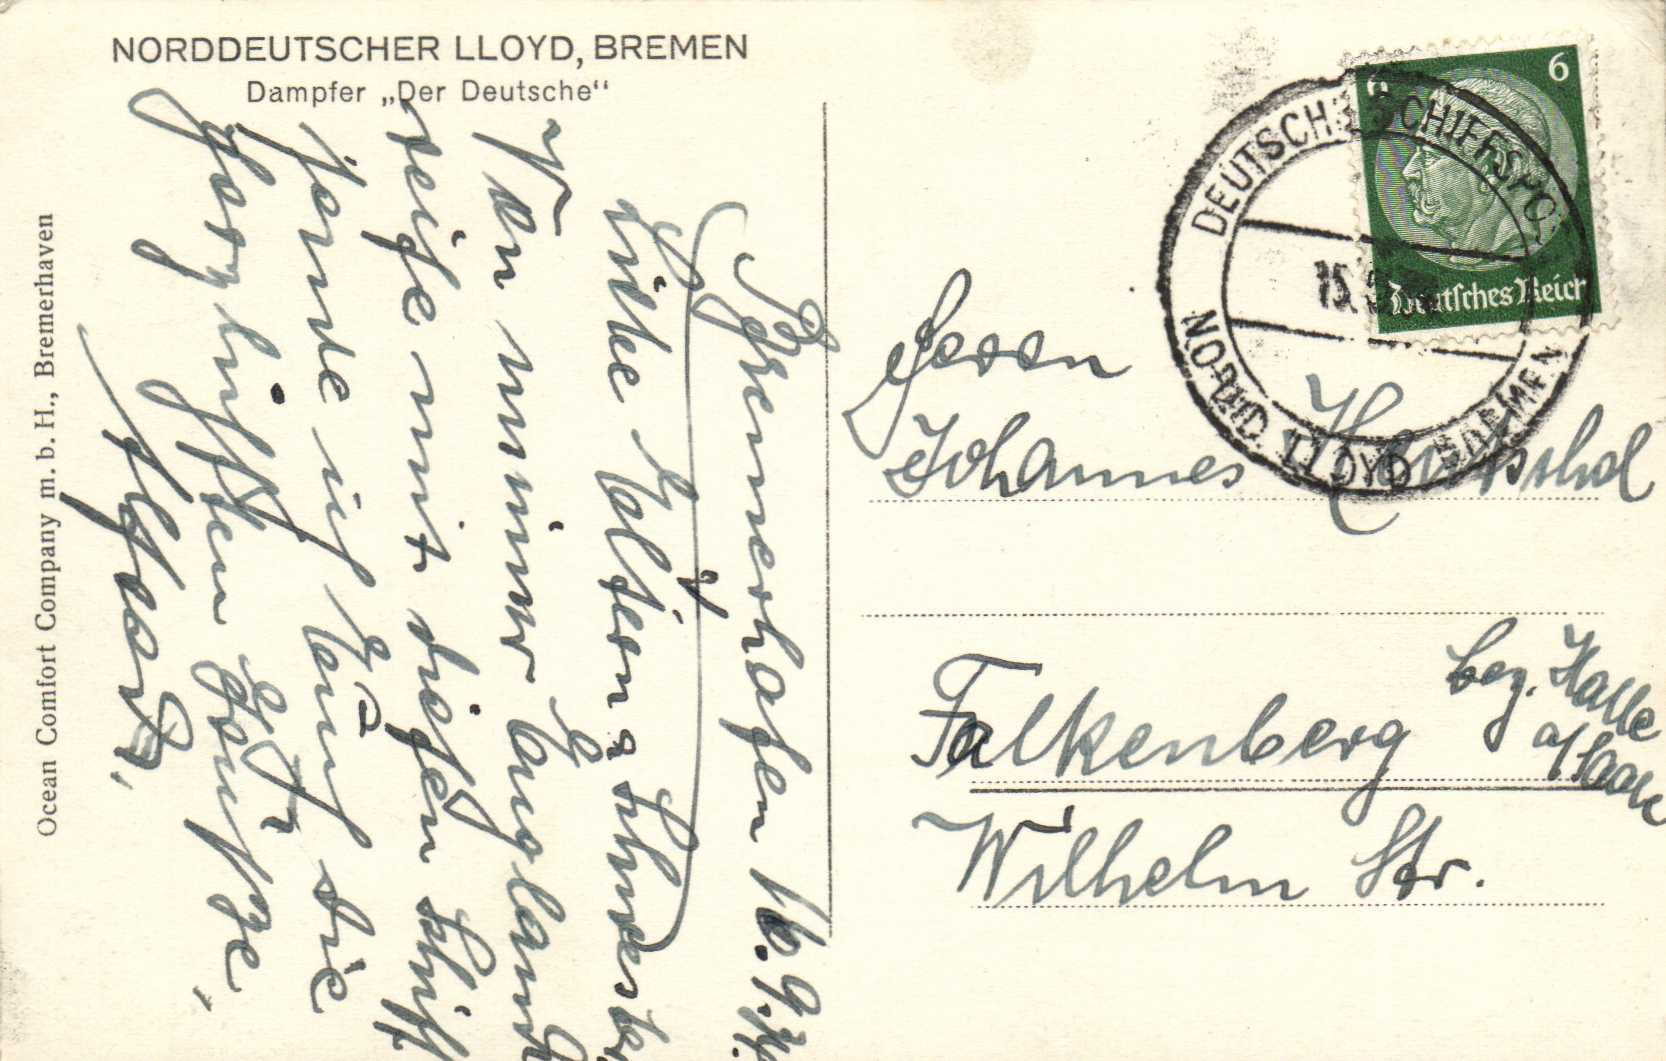 NORDDEUTSCHER LLOYD, BREMEN
Dampfer „Der Deutsche“
Ocean Comfort Company m. b. H., Bremerhaven
Bremerhafen 16.9.
Liebe Eltern u. Schwester
Von meiner Englandreise
mit diesen Schiff
sende ich Euch die
herzlichsten Grüße,
6
Deutsches Reich
DEUTSCHE SCHIFFSPOST
15.
NORDD. LLOYD BREMEN
Herrn
Johannes
Falkenberg
bez. Halle
a/Saale
Wilhelm Str.